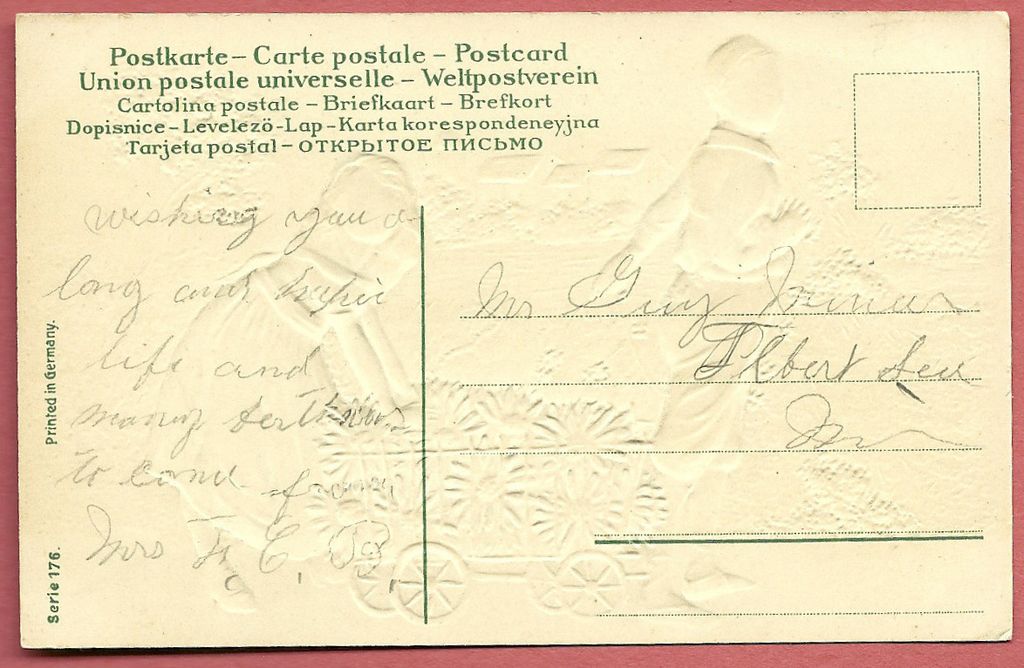 Postkarte – Carte postale – Postcard
Union postale universelle – Weltpostverein
Cartolina postale – Briefkaart – Brefkort
Dopisnice – Levelezö-Lap – Karta korespondeneyjna
Tarjeta postal – ОТКРЫТОЕ ПИСЬМО
wishing you a
long and
life and
many
to come from
Mrs F. C. B.
Mr Guy
Albert Lea
Printed in Germany.
Serie 176.